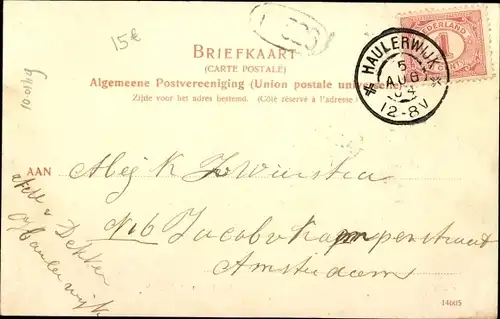 15€
BRIEFKAART
(CARTE POSTALE)
Algemeene Postvereeniging (Union postale universelle)
Zijde voor het adres bestemd. (Côté réservé à l'adresse)
NEDERLAND
1
CENT
HAULERWIJK
5
AUG
04
12-8V
AAN Mej K Zwinstra
No 6 Jacob v Kampenstraat
Amsterdam
Dekker
Haulerwijk
14605